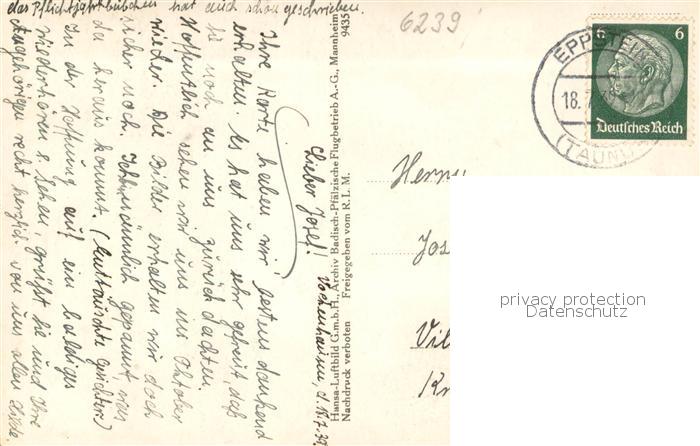 Lieber Josef! Vockenhausen, d. 18.7.39.
Ihre Karte haben wir gestern dankend
erhalten. Es hat uns sehr gefreut, daß
Sie noch an uns zurück dachten.
Hoffentlich sehen wir uns im Oktober
wieder. Die Bilder erhalten wir doch
sicher noch. Ich bin nämlich gespannt, was
da heraus kommt. (Enttäuschte Gesichter)
In der Hoffnung auf ein baldiges
Wiederhören u. Sehen, grüßt Sie und Ihre
Angehörigen recht herzlich von uns allen
das Pflichtjahrbübchen hat auch schon geschrieben.
Hansa-Luftbild G.m.b.H., Archiv Badisch-Pfälzische Flugbetrieb A.-G., Mannheim
Nachdruck verboten Freigegeben vom R. L. M. 9435
6239
EPPSTEIN
18.7.
(TAUNUS)
6 6
Deutsches Reich
Herrn
Jos
Vil
Kr
privacy protection
Datenschutz